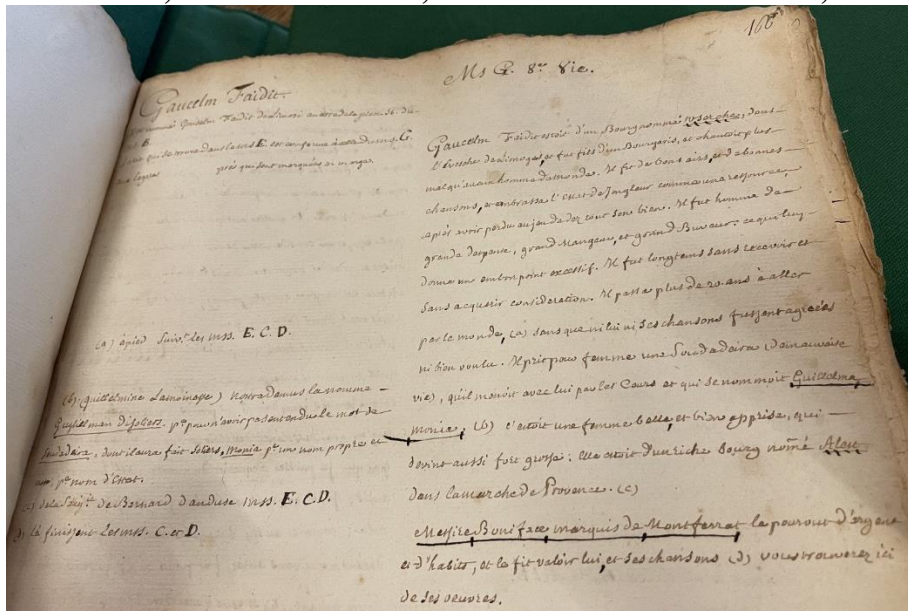 166
Ms G. 8.ᵉ Vie.
Gaucelm Faidit.
E.
(a) apied suiv.ᵗ les mss. E. C. D.
(b) (guillelmine Lamoinesse) nostradamus la nomme
Guilhelmon de soliers. p.ʳ n'avoir pas entendu le mot de
soudadeira, dont il aura fait soliers, monia p.ʳ un nom propre et
non, p.ʳ nom d'Etat.
de Bernard d'anduse mss. E. C. D.
là finissent Les mss. C. et D.
Gaucelm Faidit estoit d'un Bourg nommé usarche, dans
l'evesché de limoges, et fut fils d'un Bourgeois, et chantoit plus
mal qu'aucun homme du monde. Il fit de bons airs, et de bonnes
chansons, et embrassa l'estat de Jongleur comme une ressource,
après avoir perdu au jeu de dez tout son bien. Il fut homme de
grande despense, grand Mangeur, et grand Buveur. ce qui luy
donna un embonpoint excessif. Il fut longtems sans recevoir et
sans acquerir consideration. Il passa plus de 20. ans à aller
par le monde, (a) sans que ni lui ni ses chansons fussent agréées
ni bien voulu. Il prit pour femme une Soudadeira (de mauvaise
vie), qu'il menoit avec lui par les Cours et qui se nommoit Guillelma
monia, (b) c'étoit une femme belle, et bien apprise, qui
devint aussi fort grosse: elle étoit d'un riche Bourg nom̃é Alest
dans la marche de Provence. (c)
Messire Boniface marquis de Montferrat le pourvut d'argent
et d'habits, et le fit valoir lui, et ses chansons (d) vous trouverez ici
de ses oeuvres.